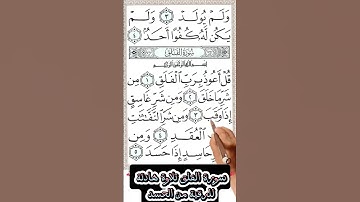 وَلَمْ يُولَدْ ٣ وَلَمْ
يَكُن لَّهُ كُفُوًا أَحَدٌ ٤
سُورَةُ الْفَلَقِ
بِسْمِ اللَّهِ الرَّحْمَٰنِ الرَّحِيمِ
قُلْ أَعُوذُ بِرَبِّ الْفَلَقِ ١ مِن
شَرِّ مَا خَلَقَ ٢ وَمِن شَرِّ غَاسِقٍ
إِذَا وَقَبَ ٣ وَمِن شَرِّ النَّفَّٰثَٰتِ
الْعُقَدِ ٤ وَمِن
حَاسِدٍ إِذَا حَسَدَ ٥
سورة الفلق تلاوة هادئة
للرقية من الحسد